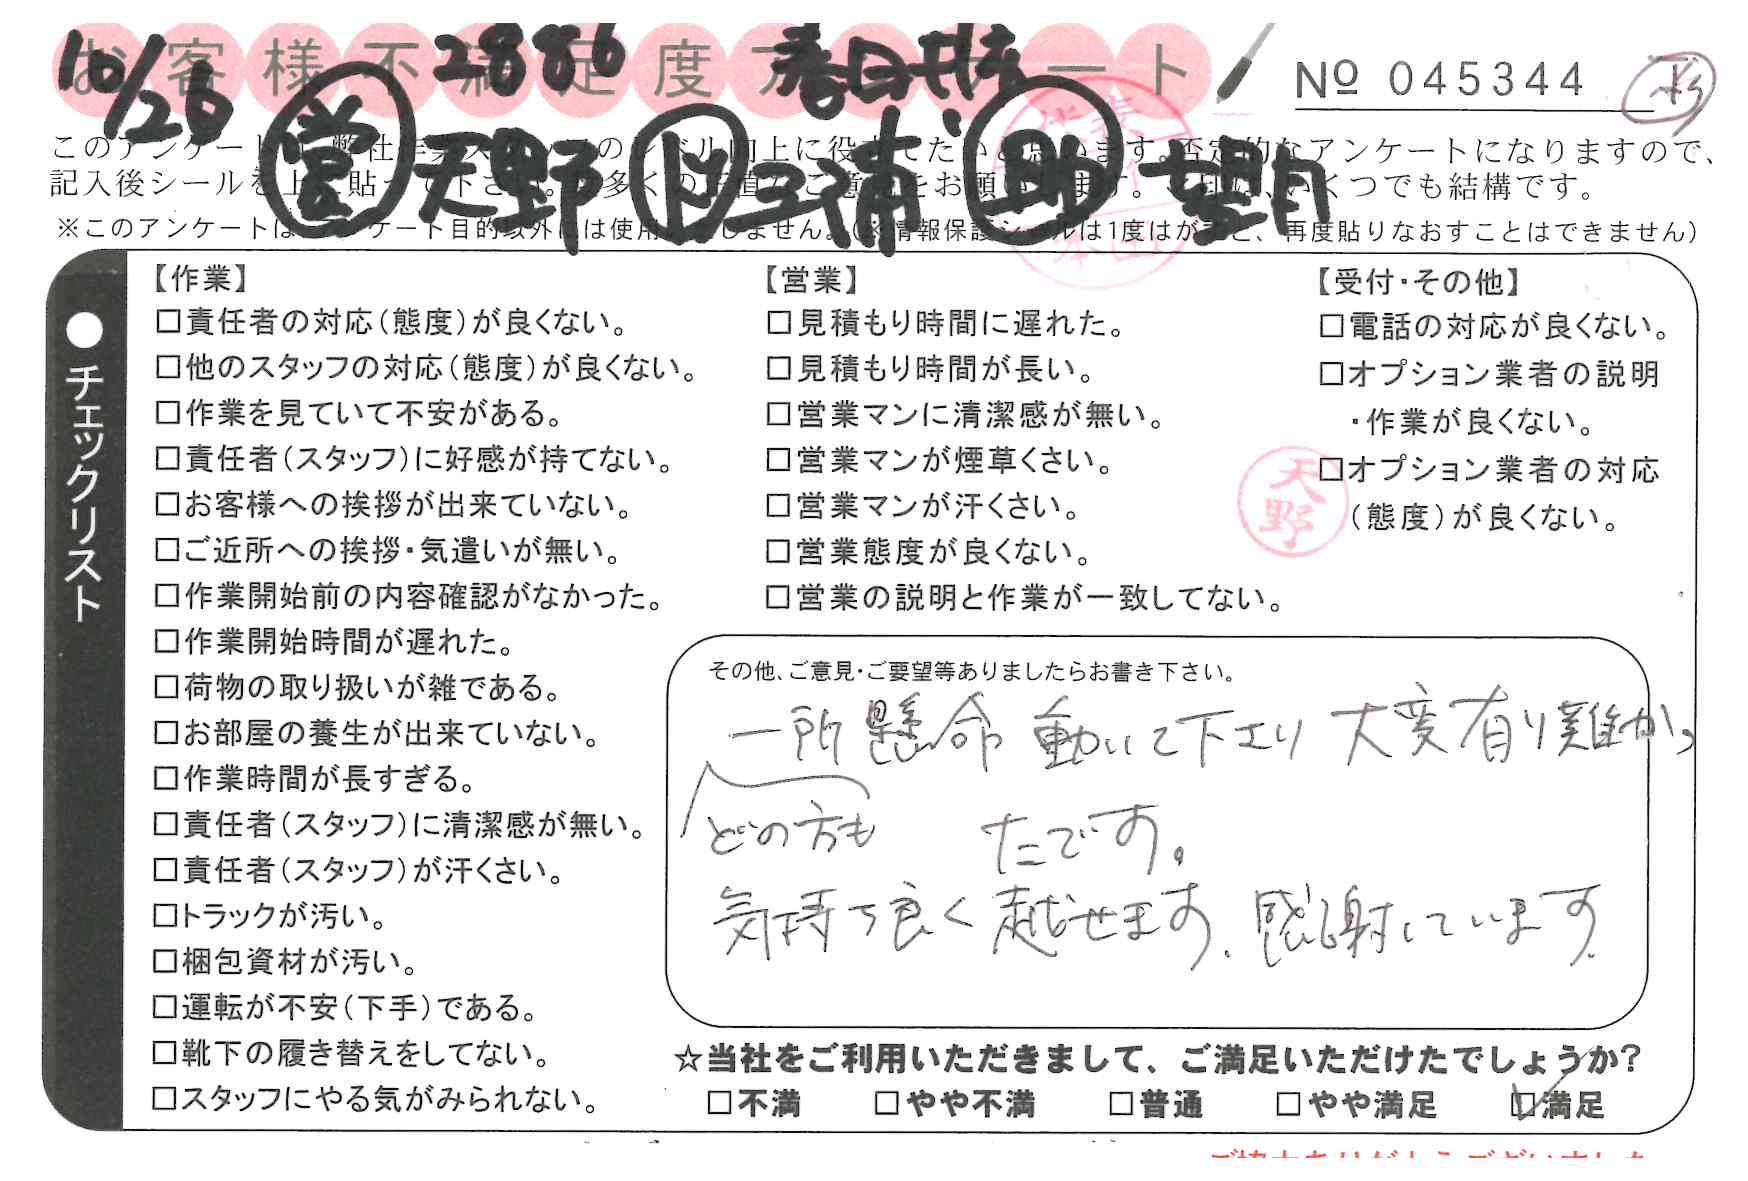 お客様不満足度アンケート
10/26 2886 春日井
№ 045344
営 天野 ド 三浦 助 望月
このアンケートは、弊社作業スタッフのレベル向上に役立てたいと思います。否定的なアンケートになりますので、
記入後シールを上に貼って下さい。数多くの正直なご意見をお願いします。✓印は、いくつでも結構です。
※このアンケートはアンケート目的以外には使用いたしません。(※情報保護シールは1度はがすと、再度貼りなおすことはできません)
●チェックリスト
【作業】
□責任者の対応(態度)が良くない。
□他のスタッフの対応(態度)が良くない。
□作業を見ていて不安がある。
□責任者(スタッフ)に好感が持てない。
□お客様への挨拶が出来ていない。
□ご近所への挨拶・気遣いが無い。
□作業開始前の内容確認がなかった。
□作業開始時間が遅れた。
□荷物の取り扱いが雑である。
□お部屋の養生が出来ていない。
□作業時間が長すぎる。
□責任者(スタッフ)に清潔感が無い。
□責任者(スタッフ)が汗くさい。
□トラックが汚い。
□梱包資材が汚い。
□運転が不安(下手)である。
□靴下の履き替えをしてない。
□スタッフにやる気がみられない。
【営業】
□見積もり時間に遅れた。
□見積もり時間が長い。
□営業マンに清潔感が無い。
□営業マンが煙草くさい。
□営業マンが汗くさい。
□営業態度が良くない。
□営業の説明と作業が一致してない。
【受付・その他】
□電話の対応が良くない。
□オプション業者の説明
・作業が良くない。
□オプション業者の対応
(態度)が良くない。
天野
その他、ご意見・ご要望等ありましたらお書き下さい。
一所懸命 動いて下さり 大変有り難かっ
どの方も たです。
気持ち良く越せます。感謝しています。
☆当社をご利用いただきまして、ご満足いただけたでしょうか?
□不満 □やや不満 □普通 □やや満足 ☑満足
ご協力ありがとうございました